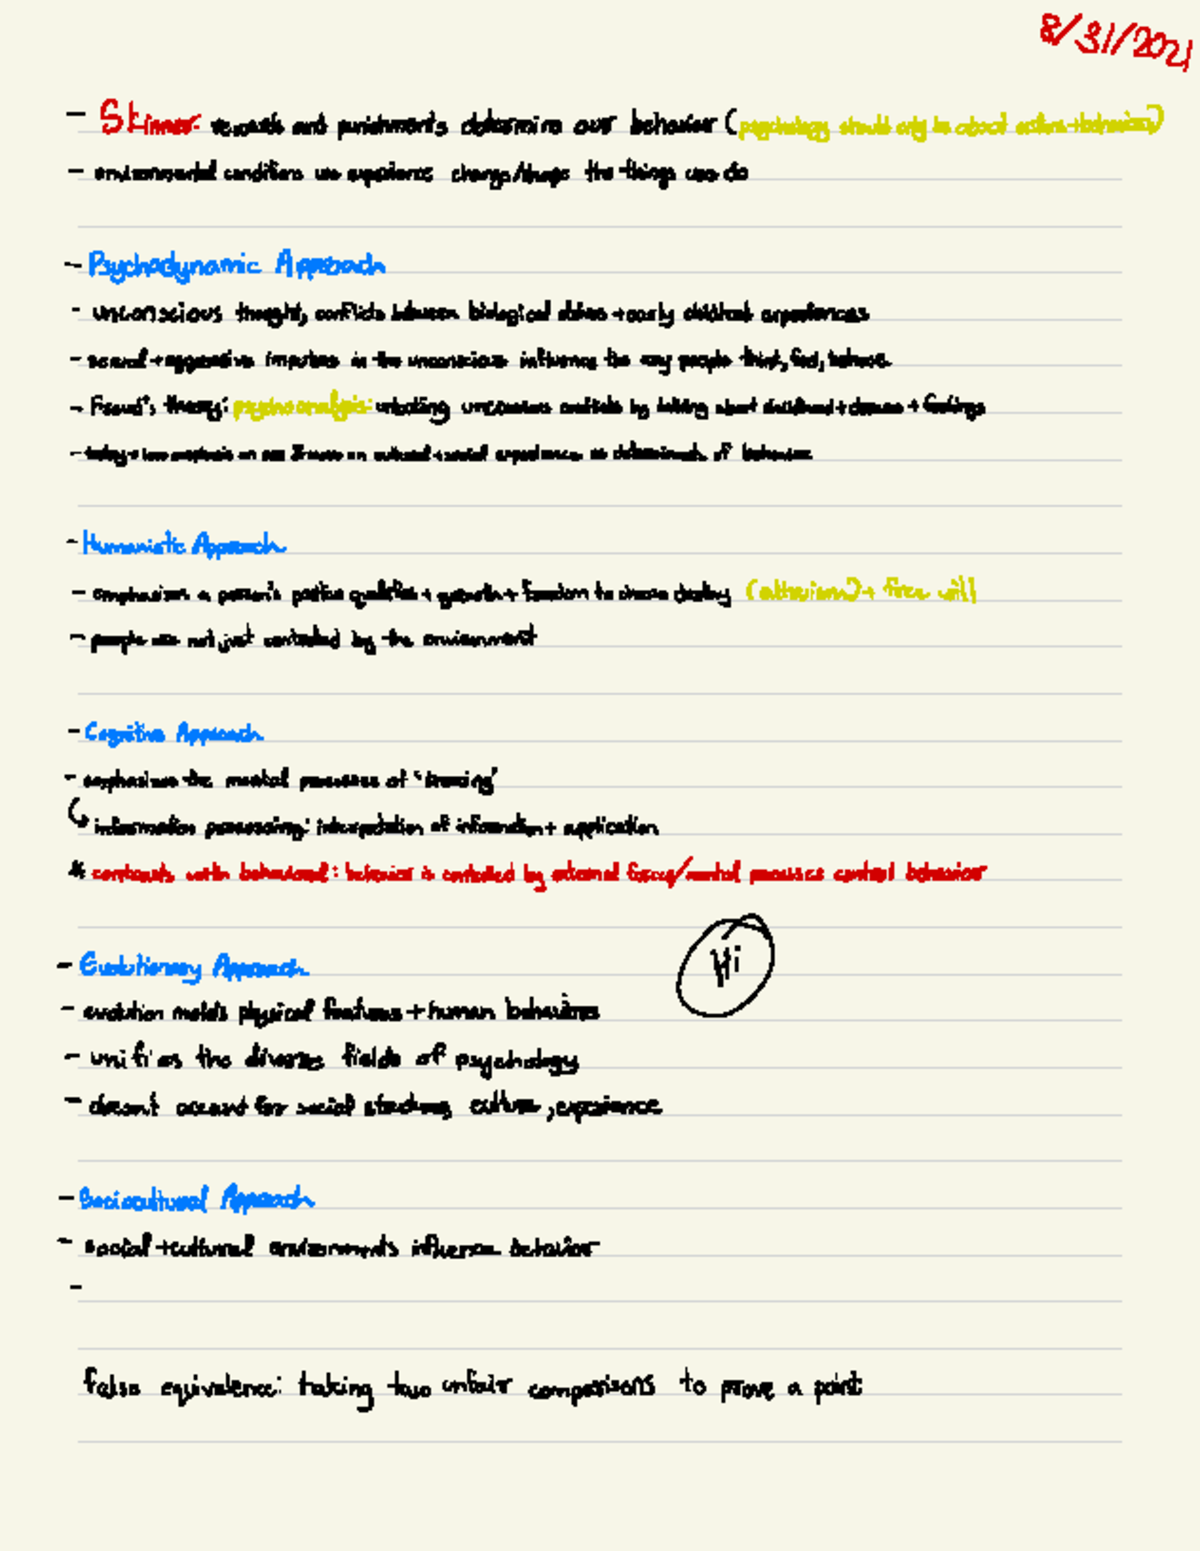 8/31/2021
- Skinner: rewards and punishments determine our behavior (psychology should only be about actions + behaviors)
- environmental conditions we experience change/shape the things we do
- Psychodynamic Approach
- unconscious thought, conflicts between biological drives + early childhood experiences
- sexual + aggressive impulses in the unconscious influence the way people think, feel, behave
- Freud's theory: psychoanalysis: unlocking unconscious conflicts by talking about childhood + dreams + feelings
- today: less emphasis on sex & more on cultural + social experiences as determinants of behavior
- Humanistic Approach
- emphasizes a person's positive qualities + growth + freedom to choose destiny (altruism) + free will
- people are not just controlled by the environment
- Cognitive Approach
- emphasizes the mental processes of "knowing"
↳ information processing: interpretation of information + application
* contrasts with behavioral: behavior is controlled by external forces/mental processes control behavior
Hi
- Evolutionary Approach
- evolution molds physical features + human behaviors
- unifies the diverse fields of psychology
- doesn't account for social structures, culture, experience
- Sociocultural Approach
- social + cultural environments influence behavior
-
false equivalence: taking two unfair comparisons to prove a point